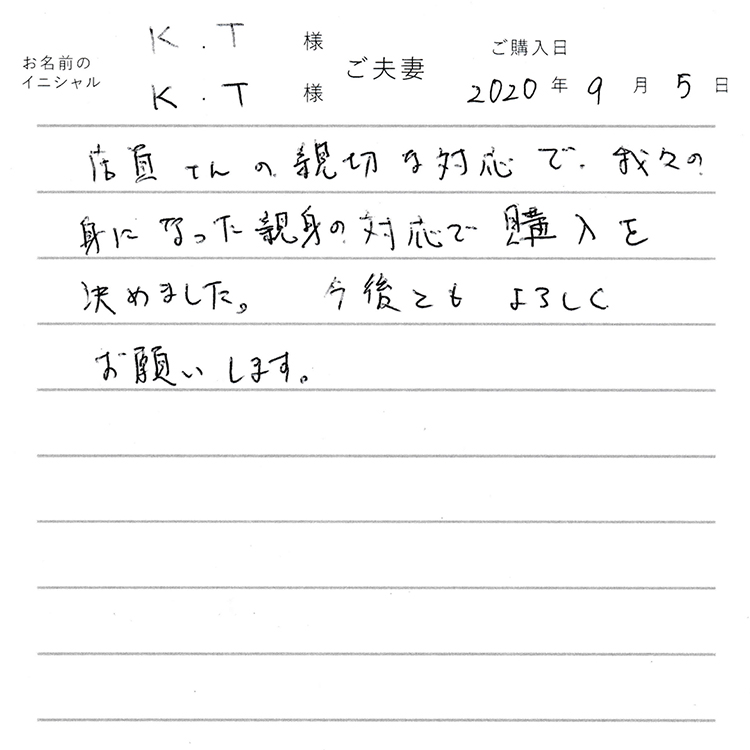 K.T 様
お名前の
イニシャル
K.T 様
ご夫妻
ご購入日
2020年9月5日
店員さんの親切な対応で、我々の
身になった親身の対応で購入を
決めました。 今後ともよろしく
お願いします。